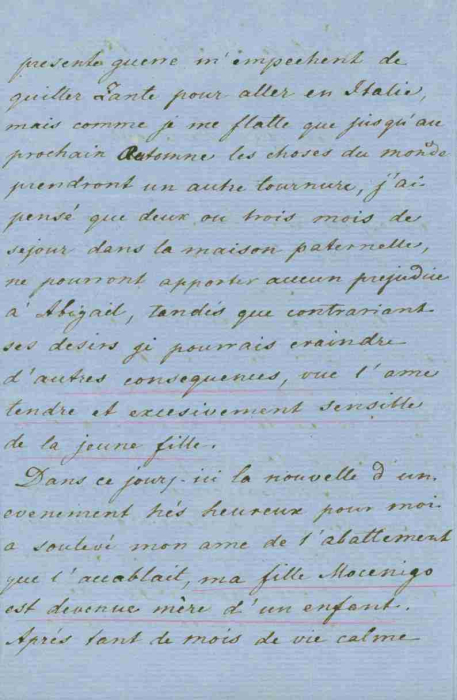 presente guerre m'empechent de
quiller Zante pour aller en Italie,
mais comme je me flatte que jusqu'au
prochain Automne les choses du monde
prendront un autre tournure, j'ai
pensé que deux ou trois mois de
séjour dans la maison paternelle,
ne pourront apporter aucun prejudice
à Abigaël, tandis que contrariant
ses desirs gi pourrais craindre
d'autres consequences, vue l'ame
tendre et excesivement sensible
de la jeune fille.
Dans ce jours-ici la nouvelle d'un
evenement trés heureux pour moi
a soulevé mon ame de l'abattement
que l'accablait, ma fille Mocenigo
est devenue mère d'un enfant.
Après tant de mois de vie calme